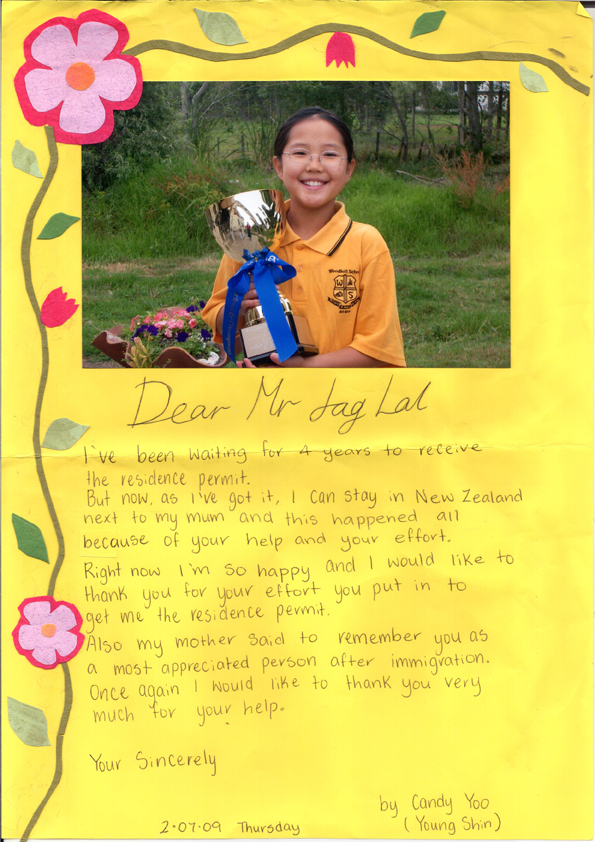 Dear Mr Jag Lal
I've been waiting for 4 years to receive
the residence permit.
But now, as I've got it, I can stay in New Zealand
next to my mum and this happened all
because of your help and your effort.
Right now I'm so happy and I would like to
thank you for your effort you put in to
get me the residence permit.
Also my mother said to remember you as
a most appreciated person after immigration.
Once again I would like to thank you very
much for your help.
Your Sincerely
by Candy Yoo
(Young Shin)
2.07.09 Thursday